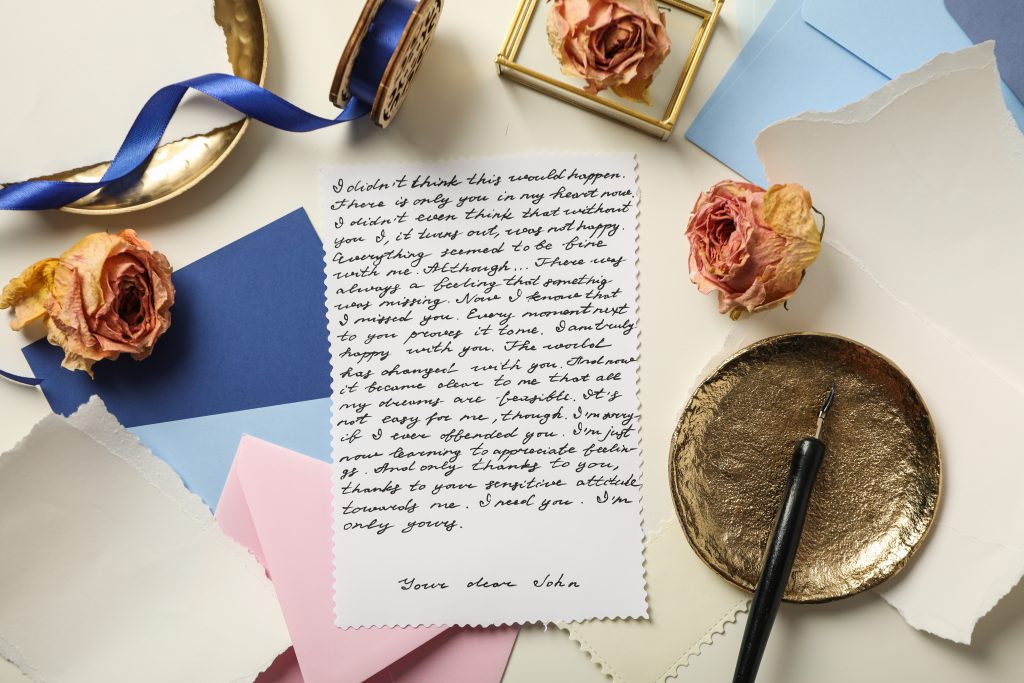 I didn't think this would happen.
There is only you in my heart now.
I didn't even think that without
you I, it turns out, was not happy.
Everything seemed to be fine
with me. Although... There was
always a feeling that somethig
was missing. Now I know that
I missed you. Every moment next
to you proves it to me. I am truly
happy with you. The world
has changed with you. And now
it became clear to me that all
my dreams are feasible. It's
not easy for me, though. I'm sorry
if I ever offended you. I'm just
now learning to appreciate feelin-
gs. And only thanks to you,
thanks to your sensitive attitude
towards me. I need you. I'm
only yours.
Your dear John